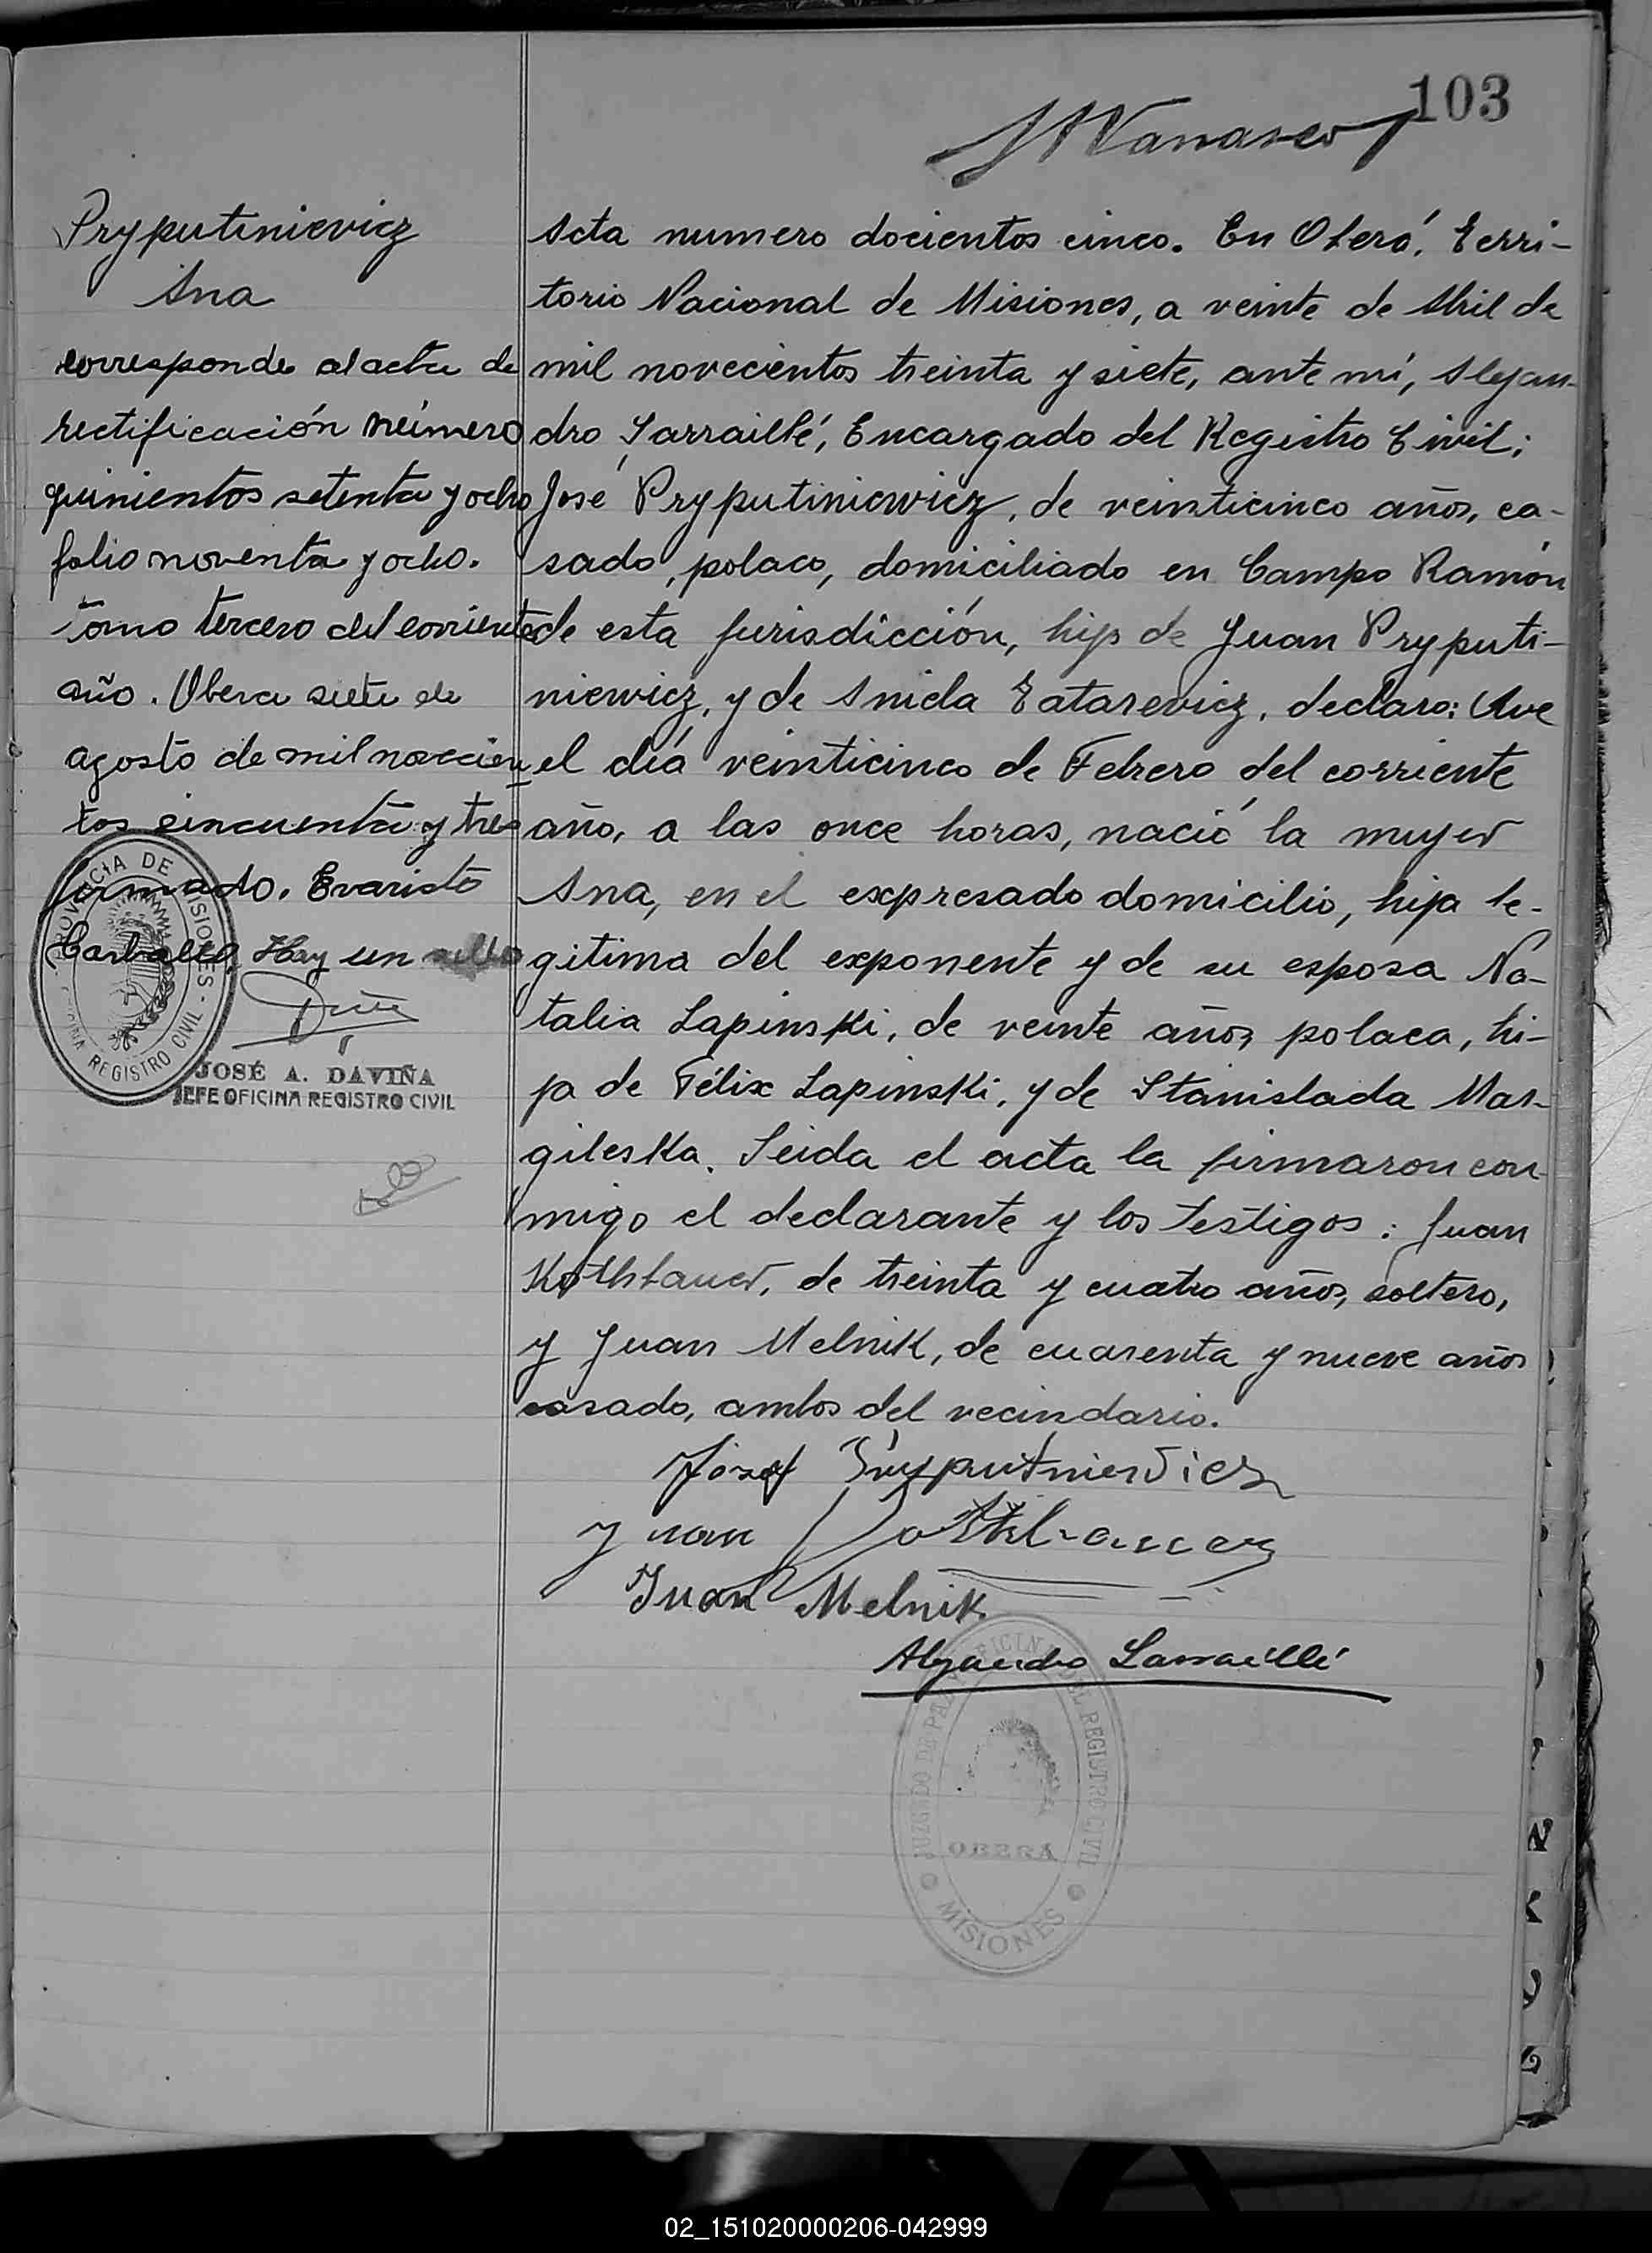 103
Pryputiniewicz
Ana
corresponde al acta de
rectificación número
quinientos setenta y ocho
folio noventa y ocho.
tomo tercero del corriente
año. Obera siete de
agosto de mil novecien
tos cincuenta y tres
firmado. Evaristo
Carballo. Hay un sello
PROVINCIA DE MISIONES - OFICINA REGISTRO CIVIL
JOSÉ A. DAVIÑA
JEFE OFICINA REGISTRO CIVIL
Acta numero docientos cinco. En Oberá, Terri-
torio Nacional de Misiones, a veinte de Abril de
mil novecientos treinta y siete, ante mí, Alejan-
dro Larraillé, Encargado del Registro Civil;
José Pryputiniewicz, de veinticinco años, ca-
sado, polaco, domiciliado en Campo Ramón
de esta jurisdicción, hijo de Juan Pryputi-
niewicz, y de Aniela Tatarevicz, declaro: Que
el día veinticinco de Febrero del corriente
año, a las once horas, nació la mujer
Ana, en el expresado domicilio, hija le-
gitima del exponente y de su esposa Na-
talia Lapinski, de veinte años, polaca, hi-
ja de Félix Lapinski, y de Stanislada Mar-
gileska. Leida el acta la firmaron con-
migo el declarante y los testigos: Juan
Kothbauer, de treinta y cuatro años, soltero,
y Juan Melnik, de cuarenta y nueve años
casado, ambos del vecindario.
Józef Pryputniewicz
Juan
Juan Melnik
Alejandro Larraillé
JUZGADO DE PAZ Y OFICINA DEL REGISTRO CIVIL
OBERÁ
MISIONES
02_151020000206-042999